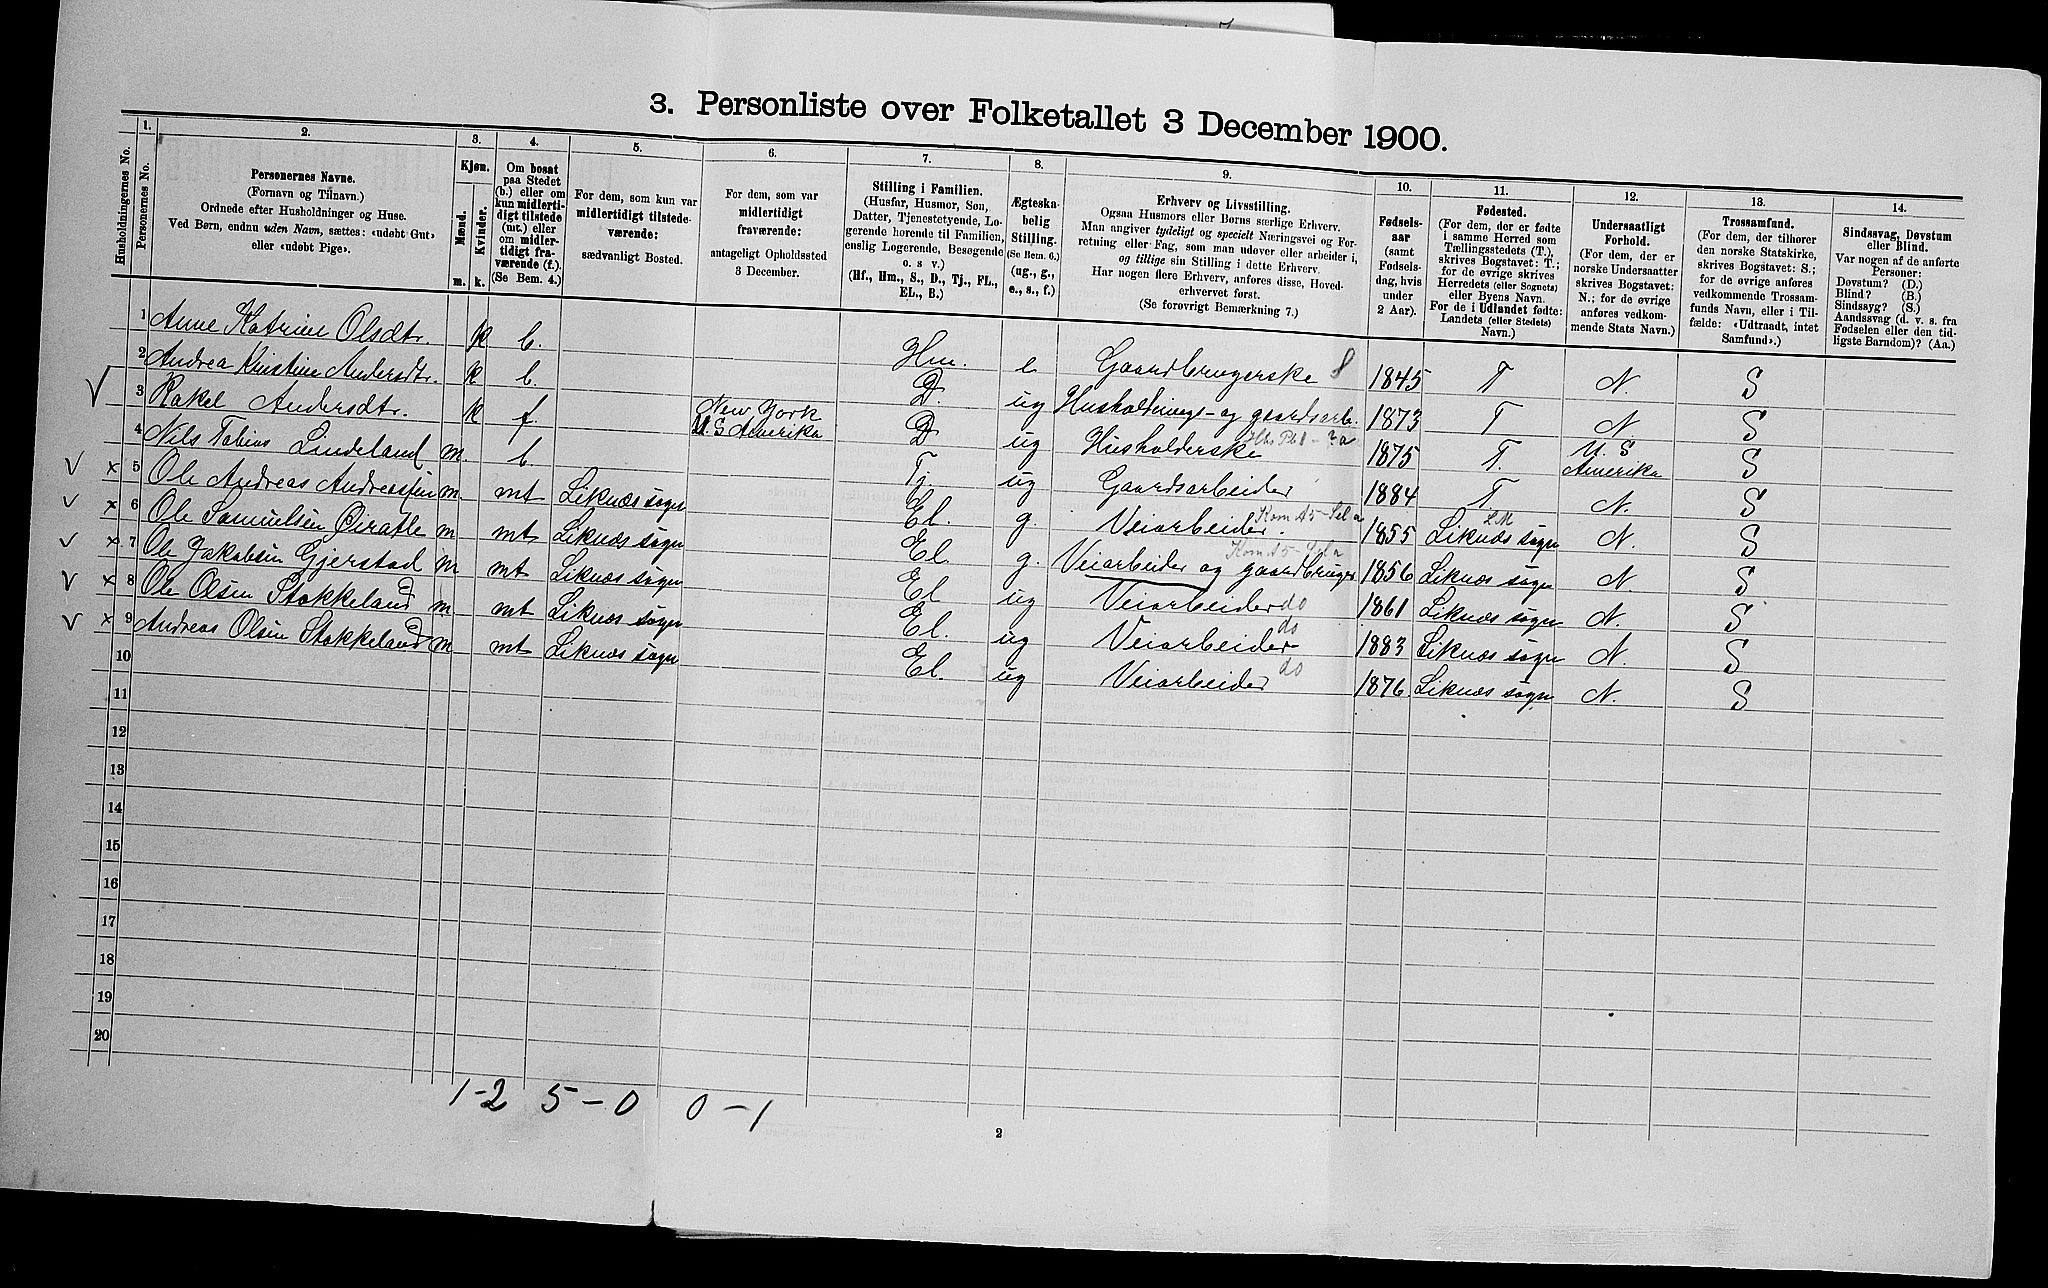 3. Personliste over Folketallet 3 December 1900.
1. 2. 3. 4. 5. 6. 7. 8. 9. 10. 11. 12. 13. 14.
Husholdningernes No.
Personernes No.
Personernes Navne.
(Fornavn og Tilnavn.)
Ordnede efter Husholdninger og Huse.
Ved Børn, endnu uden Navn, sættes: «udøbt Gut»
eller «udøbt Pige».
Kjøn.
Mænd.
Kvinder.
m. k.
Om bosat
paa Stedet
(b.) eller om
kun midlerti-
digt tilstede
(mt.) eller
om midler-
tidigt fra-
værende (f.).
(Se Bem. 4.)
For dem, som kun var
midlertidigt tilstede-
værende:
sædvanligt Bosted.
For dem, som var
midlertidigt
fraværende:
antageligt Opholdssted
3 December.
Stilling i Familien.
(Husfar, Husmor, Søn,
Datter, Tjenestetyende, Lo-
gerende hørende til Familien,
enslig Logerende, Besøgende
o. s v.)
(Hf., Hm., S., D., Tj., FL.,
EL., B.)
Ægteska-
belig
Stilling.
(Se Bem. 6.)
(ug., g.,
e., s., f.)
Erhverv og Livsstilling.
Ogsaa Husmors eller Børns særlige Erhverv.
Man angiver tydeligt og specielt Næringsvei og For-
retning eller Fag, som man udøver eller arbeider i,
og tillige sin Stilling i dette Erhverv.
Har nogen flere Erhverv, anføres disse, Hoved-
erhvervet først.
(Se forøvrigt Bemærkning 7.)
Fødsels-
aar
(samt
Fødsels-
dag, hvis
under
2 Aar).
Fødested.
(For dem, der er fødte
i samme Herred som
Tællingsstedets (T.),
skrives Bogstavet: T.;
for de øvrige skrives
Herredets (eller Sognets)
eller Byens Navn.
For de i Udlandet fødte:
Landets (eller Stedets)
Navn.)
Undersaatligt
Forhold.
(For dem, der er
norske Undersaatter
skrives Bogstavet:
N.; for de øvrige
anføres vedkom-
mende Stats Navn.)
Trossamfund.
(For dem, der tilhører
den norske Statskirke,
skrives Bogstavet: S.;
for de øvrige anføres
vedkommende Trossam-
funds Navn, eller i Til-
fælde: «Udtraadt, intet
Samfund».)
Sindssvag, Døvstum
eller Blind.
Var nogen af de anførte
Personer:
Døvstum? (D.)
Blind? (B.)
Sindssyg? (S.)
Aandssvag (d. v. s. fra
Fødselen eller den tid-
ligste Barndom)? (Aa.)
1 Anne Katrine Olsdtr. k b. Hm. e Gaardbrugerske 1845 T N. S
2 Andrea Kristine Andersdtr. k b. D. ug Husholdnings- og gaardsarb. 1873 T N S
3 Rakel Andersdtr. k f. New York U. S Amerika D ug Husholderske 1875 T. U. S Amerika S
4 Nils Tobias Lindeland m. b. Tj. ug Gaardsarbeider 1884 T N. S
x 5 Ole Andreas Andreassen m. mt Liknæs sogn El. g. Veiarbeider. 1855 Liknæs sogn N. S
x 6 Ole Samuelsen m mt Liknæs sogn El. g. Veiarbeider og gaardbruger 1856 Liknæs sogn N. S
x 7 Ole Jakobsen Gjerstad m mt Liknæs sogn El ug Veiarbeider do 1861 Liknæs sogn N. S
x 8 Ole Olsen Stokkeland m. mt Liknæs sogn El. ug Veiarbeider do 1883 Liknæs sogn N. S
x 9 Andreas Olsen Stokkeland m mt Liknæs sogn El. ug Veiarbeider do 1876. Liknæs sogn N. S
10
11
12
13
14
15
16
17
18
19
20
1-2 5-0 0-1
2